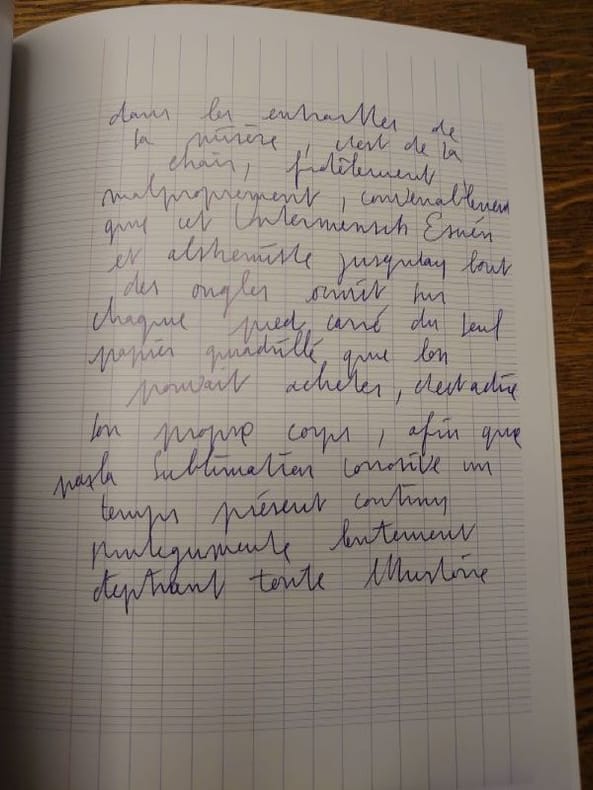 dans les entrailles de
la misère, c'est de la
chair, fidèlement,
malproprement, convenablement
que cet Untermensch Eskén
et alshemiste jusqu'au bout
des ongles écrivit sur
chaque pied carré du seul
papier quadrillé que l'on
pouvait acheter, c'est à dire
son propre corps, afin que
par la sublimation corrosive un
temps présent continu
lentement
toute l'Histoire